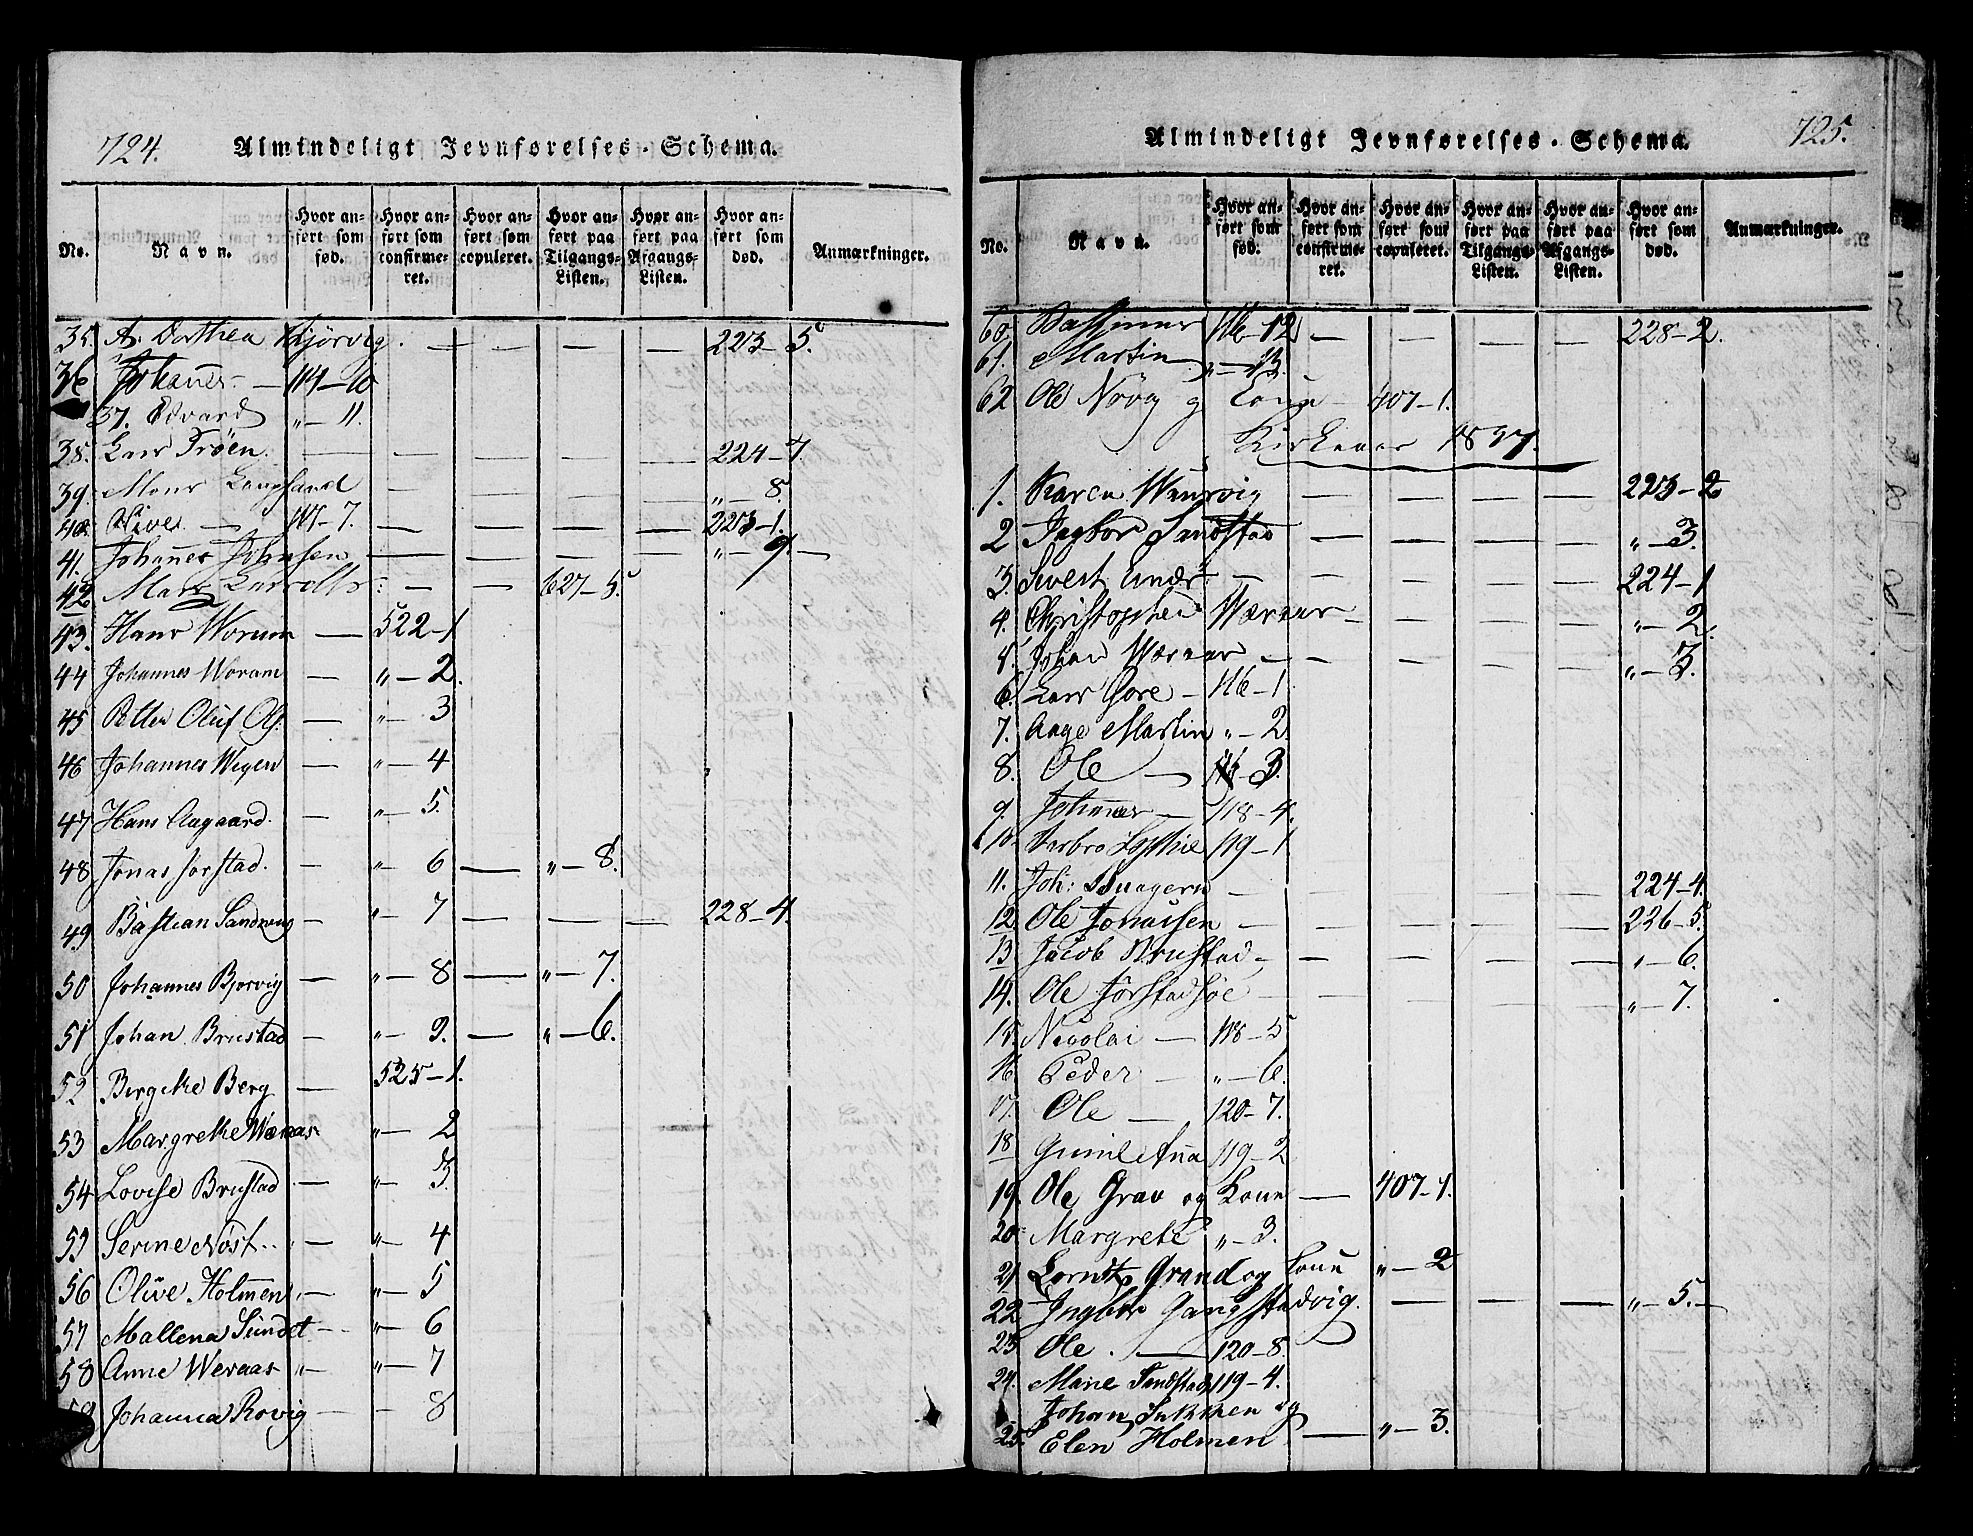 724.
Almindeligt Jevnførelses-Schema.
No.
Navn.
Hvor anført som fød.
Hvor anført som confirmeret.
Hvor anført som copuleret.
Hvor anført paa Tilgangs-Listen.
Hvor anført paa Afgangs-Listen.
Hvor anført som død.
Anmærkninger.
35. A. Dorthea — — — — 223-5.
36 Johannes — 10
37. Edvard „ — 11.
38. Lars Trøen. — — — — — 224-7.
39. Mons — — — — „ — 8.
40. Olive — 7. — — — — 223-1.
41. Johannes Johnsen — — — — „ — 9. —
42 — — 627-5.
43. Hans Worum — 522-1
44 Johannes Woram — „ — 2.
45 Petter Oluf Ols. — „ — 3
46 Johannes Wegen — „ — 4
47 Hans Aagaard. — „ — 5.
48 Jonas Sørstad. — „ — 6 — „ — 8.
49 Bastian Sandvig — „ — 7 — — — 228-4.
50 Johannes Bjørvig — „ — 8 — „ — 7.
51 Johan Brustad — „ — 9. — „ — 6.
52 Birgithe Berg — 525-1.
53 Margrethe Weraas „ — 2
54 Lovise Brustad — „ — 3.
55 Serine Nøst. — „ — 4
56 Olive Holmen „ — „ — 5
57 Mallena Sundet — „ — 6
58 Anne Weraas „ — „ — 7
59 Johanna Rovig — — 8
725.
Almindeligt Jevnførelses-Schema.
No.
Navn.
Hvor anført som fød.
Hvor anført som confirmeret.
Hvor anført som copuleret.
Hvor anført paa Tilgangs-Listen.
Hvor anført paa Afgangs-Listen.
Hvor anført som død.
Anmærkninger.
60. 116-12 — — — — 228-2.
61. Martin „ — 13.
62 Ole og Kone — 407-1.
Kirkeaar 1837.
1. Karen — — — — — 223-2
2 Ingbor Sandstad — — — — „ — 3.
3. Sivert — — — — — 224-1
4. Christopher Weraas — — — — — „ — 2.
5. Johan Weraas — — — — — „ — 3.
6. Lars Gore — 116-1.
7. Aage Martin „ — 2.
8. Ole — 3.
9. Johannes — 118-4.
10. 119-1
11. Joh: — — — — — 224-4.
12. Ole Jonassen — — — — — 226-5.
13 Jacob Brustad — — — — — „ — 6.
14. Ole Jørstadsøe — — — — — „ — 7.
15. Nicolai — 118-5
16. Peder — „ — 6.
17. Ole — 120-7.
18 119-2
19. Ole Grav og Kone — 407-1.
20. Margrete „ — 3.
21 Lornts Grand og Kone „ — 2
22 Ingbor Gangstadvig. — — — „ — 5. —
23 Ole. — 120-8.
24. Marie Sandstad 119-4.
Johan og
25. Elen Holmen — „ — 3.